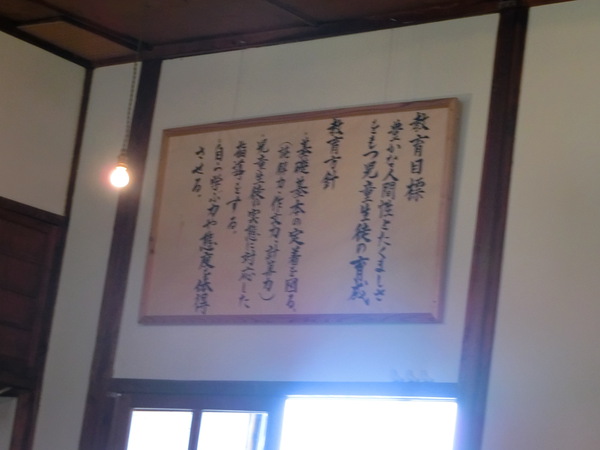 教育目標
豊かな人間性とたくましさ
をもつ児童生徒の育成
教育方針
・基礎基本の定着を図る。
(読解力・作文力・計算力)
・児童生徒の実態に対応した
指導をする。
・自ら学ぶ力や態度を体得
させる。